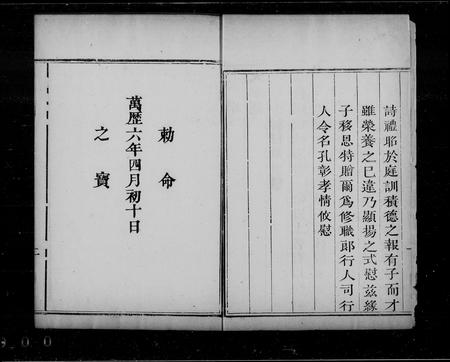 詩禮昭於庭訓積德之報有子而才
雖榮養之已違乃顯揚之式慰玆緣
子移恩特贈爾爲修職郎行人司行
人令名孔彰孝情攸慰
勅命
萬歷六年四月初十日
之寶